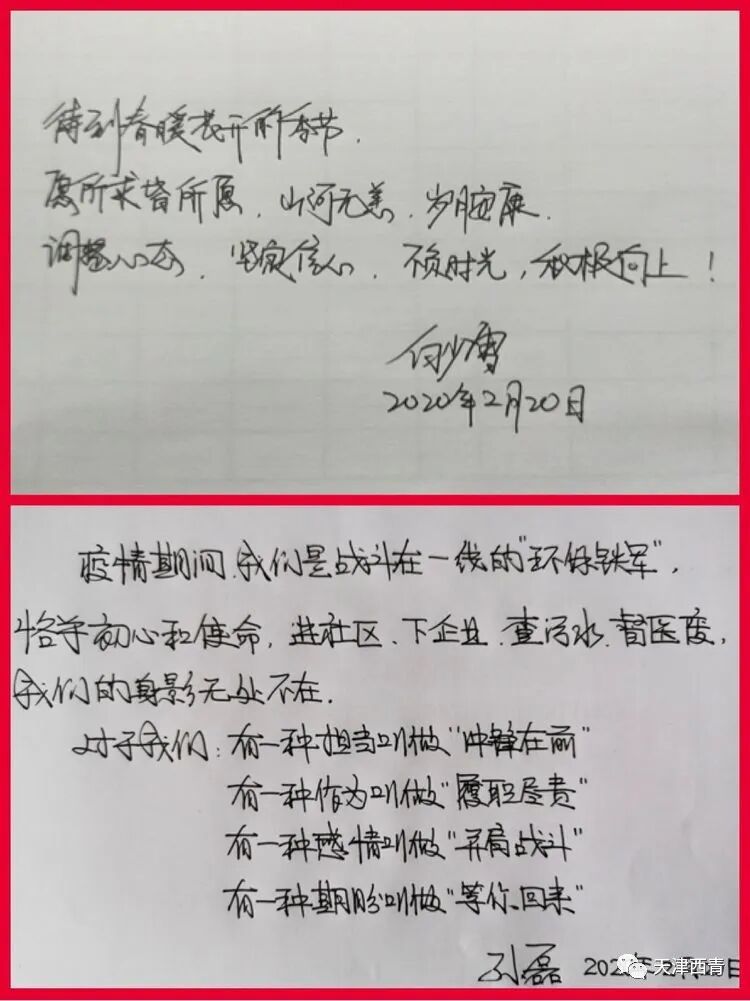 待到春暖花开的季节,
愿所求皆所愿、山河无恙、岁月安康.
调整心态、坚定信心、不负时光,积极向上!
白少雪
2020年2月20日
疫情期间,我们是战斗在一线的"环保铁军",
恪守初心和使命,进社区、下企业、查污水、督医废,
我们的身影无处不在.
对于我们:有一种担当叫做"冲锋在前"
有一种作为叫做"履职尽责"
有一种感情叫做"并肩战斗"
有一种期盼叫做"等你回来"
孙磊 202
天津西青